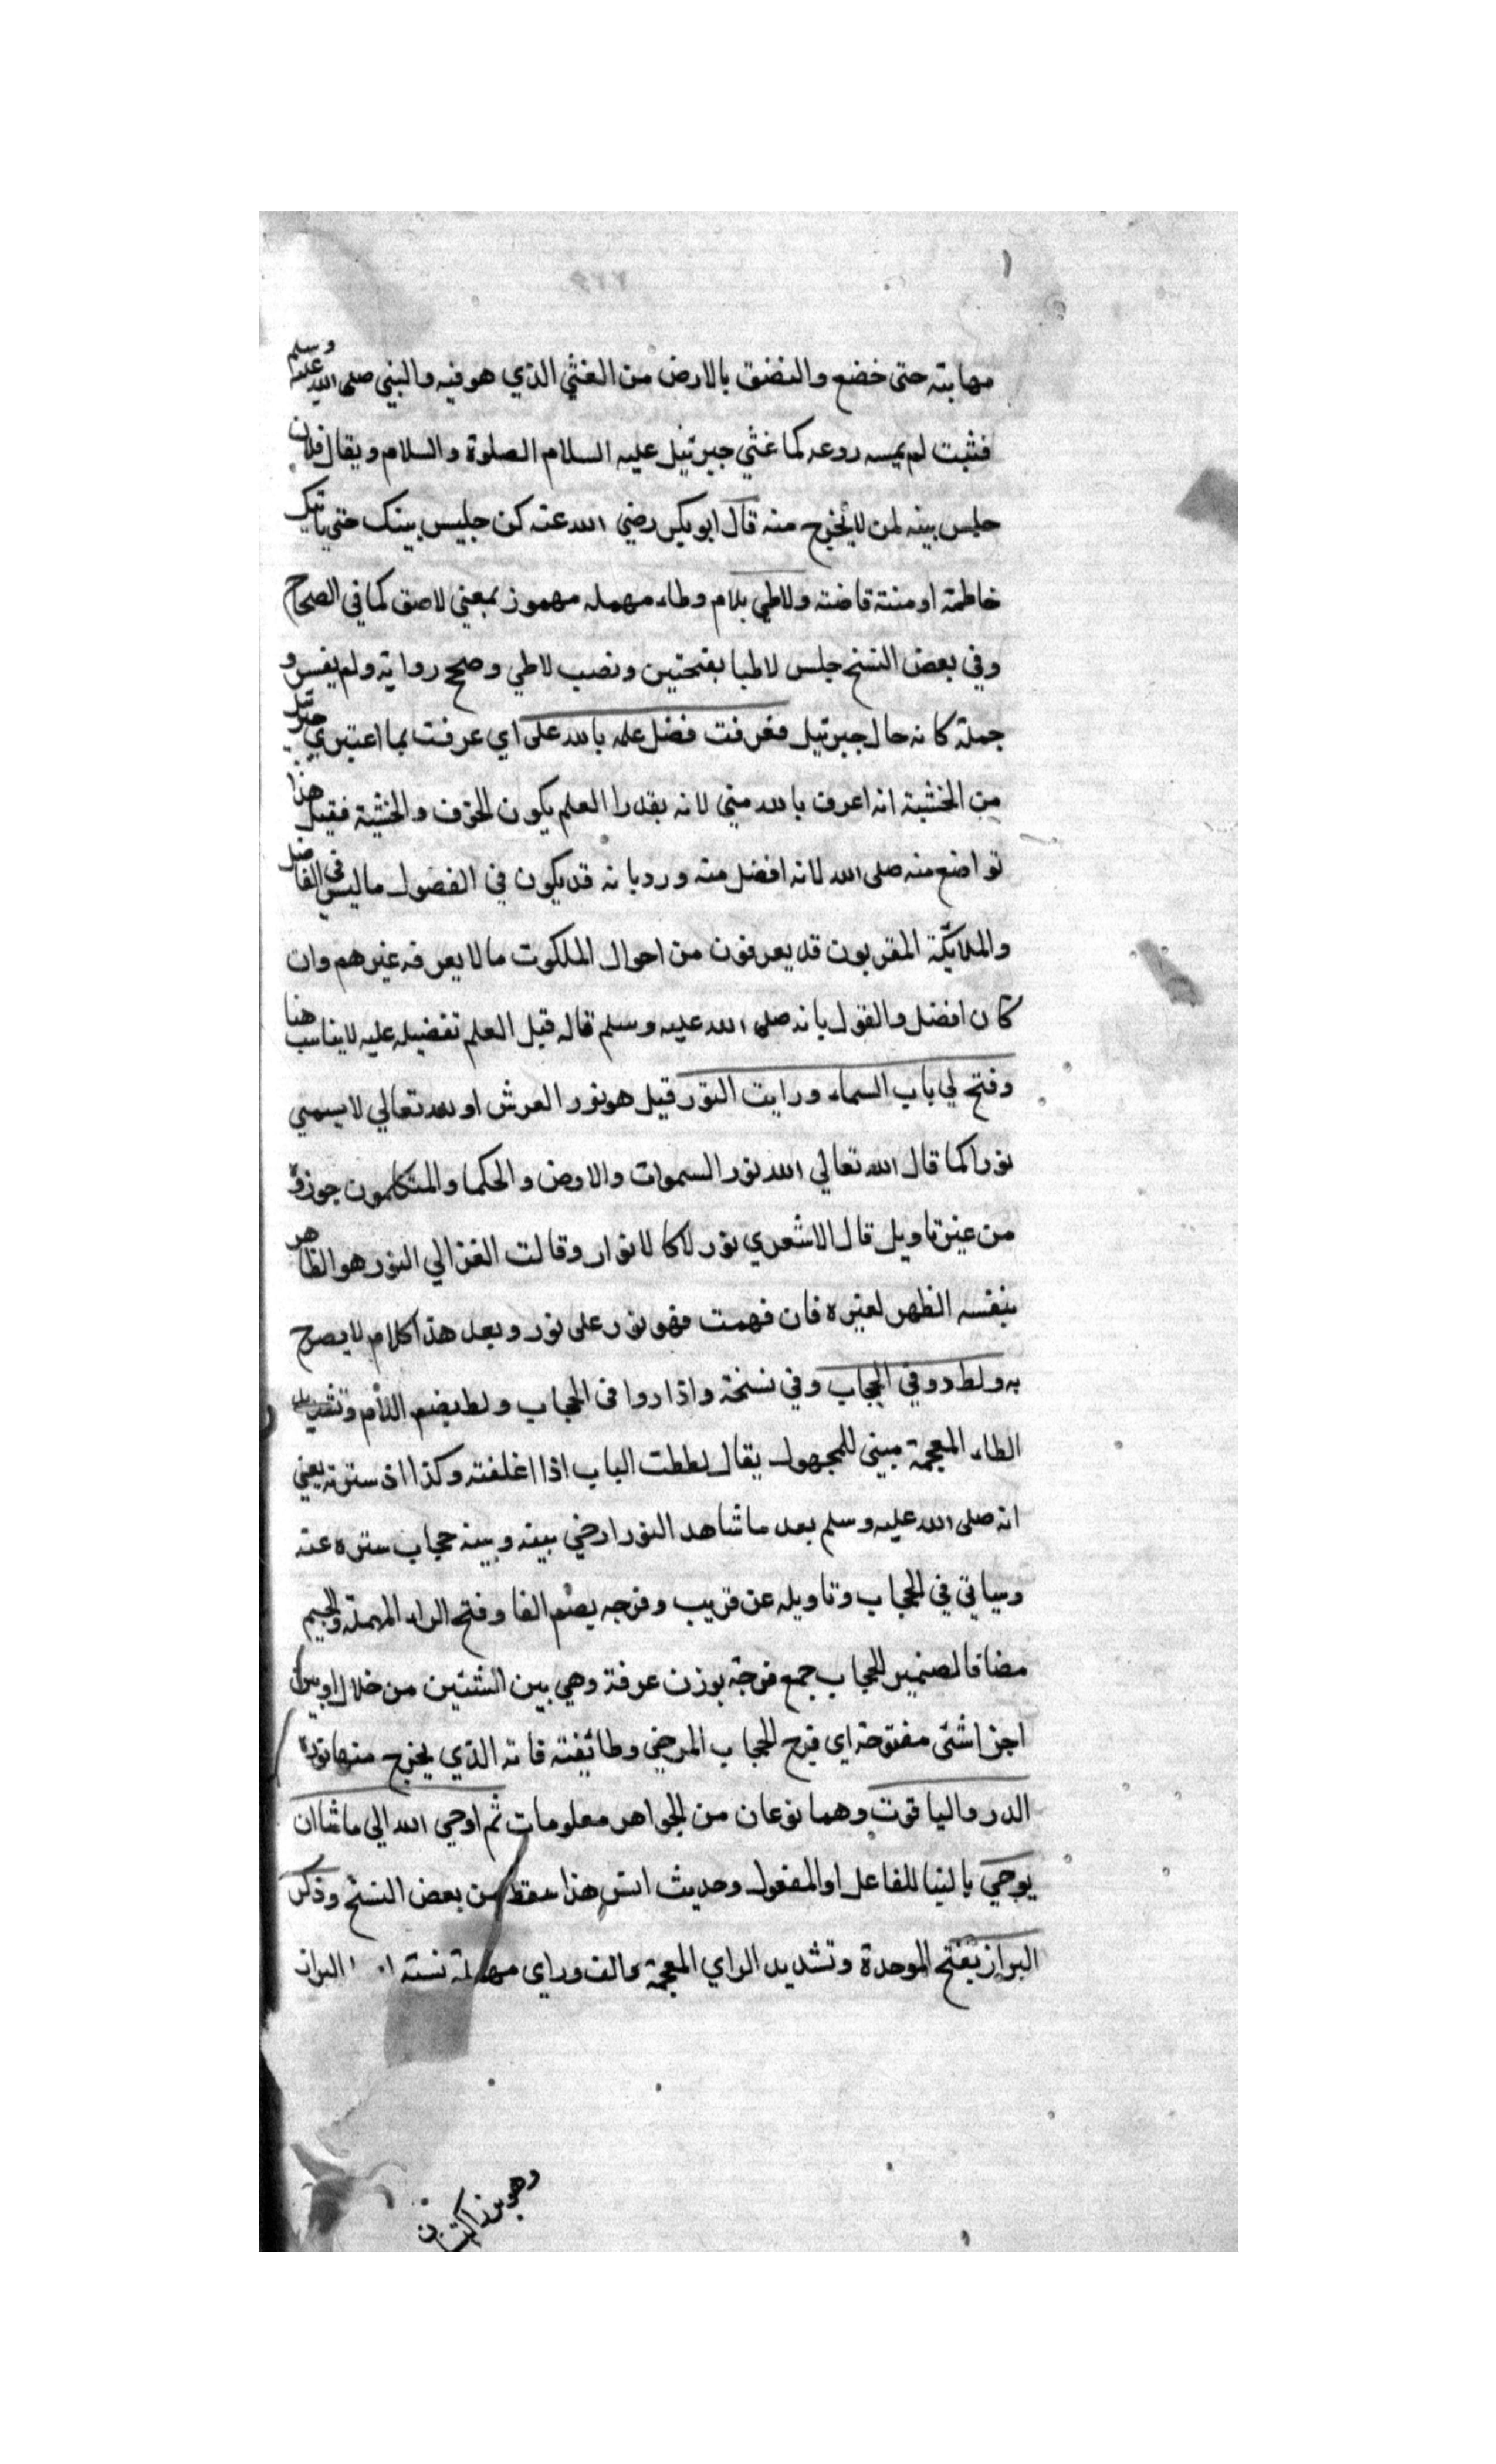 مهابته حتى خضع والتضق بالارض من الغثي الذي هو فيه والنبي صلى الله عليه وسلم
فثبت لم يمسه روعه كما غثي جبرئيل عليه السلام الصلوة والسلام ويقال فلان
حلس بيته لمن لا يخرج منه قال ابو بكر رضي الله عنه كن جليس بيتك حتي ياتيك
خاطمة او منتة قاضته ولاطي بلام وطاء مهمله مهموز بمعني لاصق كما في الصحاح
وفي بعض النسخ جلس لاطيا بفتحتين ونصب لاطي وصح رواية ولم يفس و
جملة كانه حال جبرئيل فعرفت فضل علمه بالله على اي عرفت بما اعتبري جبرئيل
من الخشية انه اعرف بالله مني لانه بقدرا العلم يكون الخوف والخشية فقيل هذا
تواضع منه صلى الله لانه افضل منه ورد بانه قد يكون في الفضول ما ليس في الفاضل
والملائكة المقربون قد يعرفون من احوال الملكوت ما لا يعرفه غيرهم وان
كان افضل والقول بانه صلى الله عليه وسلم قاله قبل العلم تفضيله عليه لا يناسب هنا
وفتح لي باب السماء ورايت النور قيل هو نور العرش او الله تعالي لا يسمي
نورا كما قال الله تعالي الله نور السموات والارض والحكما والمتكلمون جوزوه
من غير تاويل قال الاشعري نور لاكا لانوار وقالت الغزالي النور هو الظاهر
بنفسه الظهر لغيره فان فهمت فهو نور على نور وبعد هذا كلام لا يصرح
به ولط دوني الحجاب وفي نسخة واذا دوا في الحجاب ولط بضم اللام وتشديد
الطاء المعجمة مبني للمجهول يقال لططت الباب اذا اغلقته وكذا اذ سترته يعني
انه صلى الله عليه وسلم بعد ما شاهد النور ارخي بينه وبينه حجاب ستره عنه
وسياتي في الحجاب وتاويله عن قريب وفرجه بضم الفا وفتح الراء المهملة والجيم
مضافا لضمير الحجاب جمع فرجة بوزن عرفة وهي بين الشئين من خلال او بين
اجزا شئى مفتوحة اي فرج الحجاب المرخي وطائفته فاته الذي يخرج منها نوره
الدر والياقوت وهما نوعان من الجواهر معلومات ثم اوحي الله الي ما شا ان
يوحي بالنبا للفاعل او المفعول وحديث انس هذا سقط من بعض النسخ وذكر
البراز بفتح الموحدة وتشديد الراي المعجمة والف وراي مهملة نسته البراز
وهو بزر